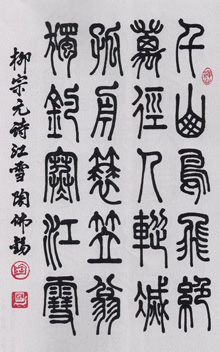 千山鳥飛絕
萬徑人蹤滅
孤舟蓑笠翁
獨釣寒江雪
柳宗元诗江雪陶佛錫